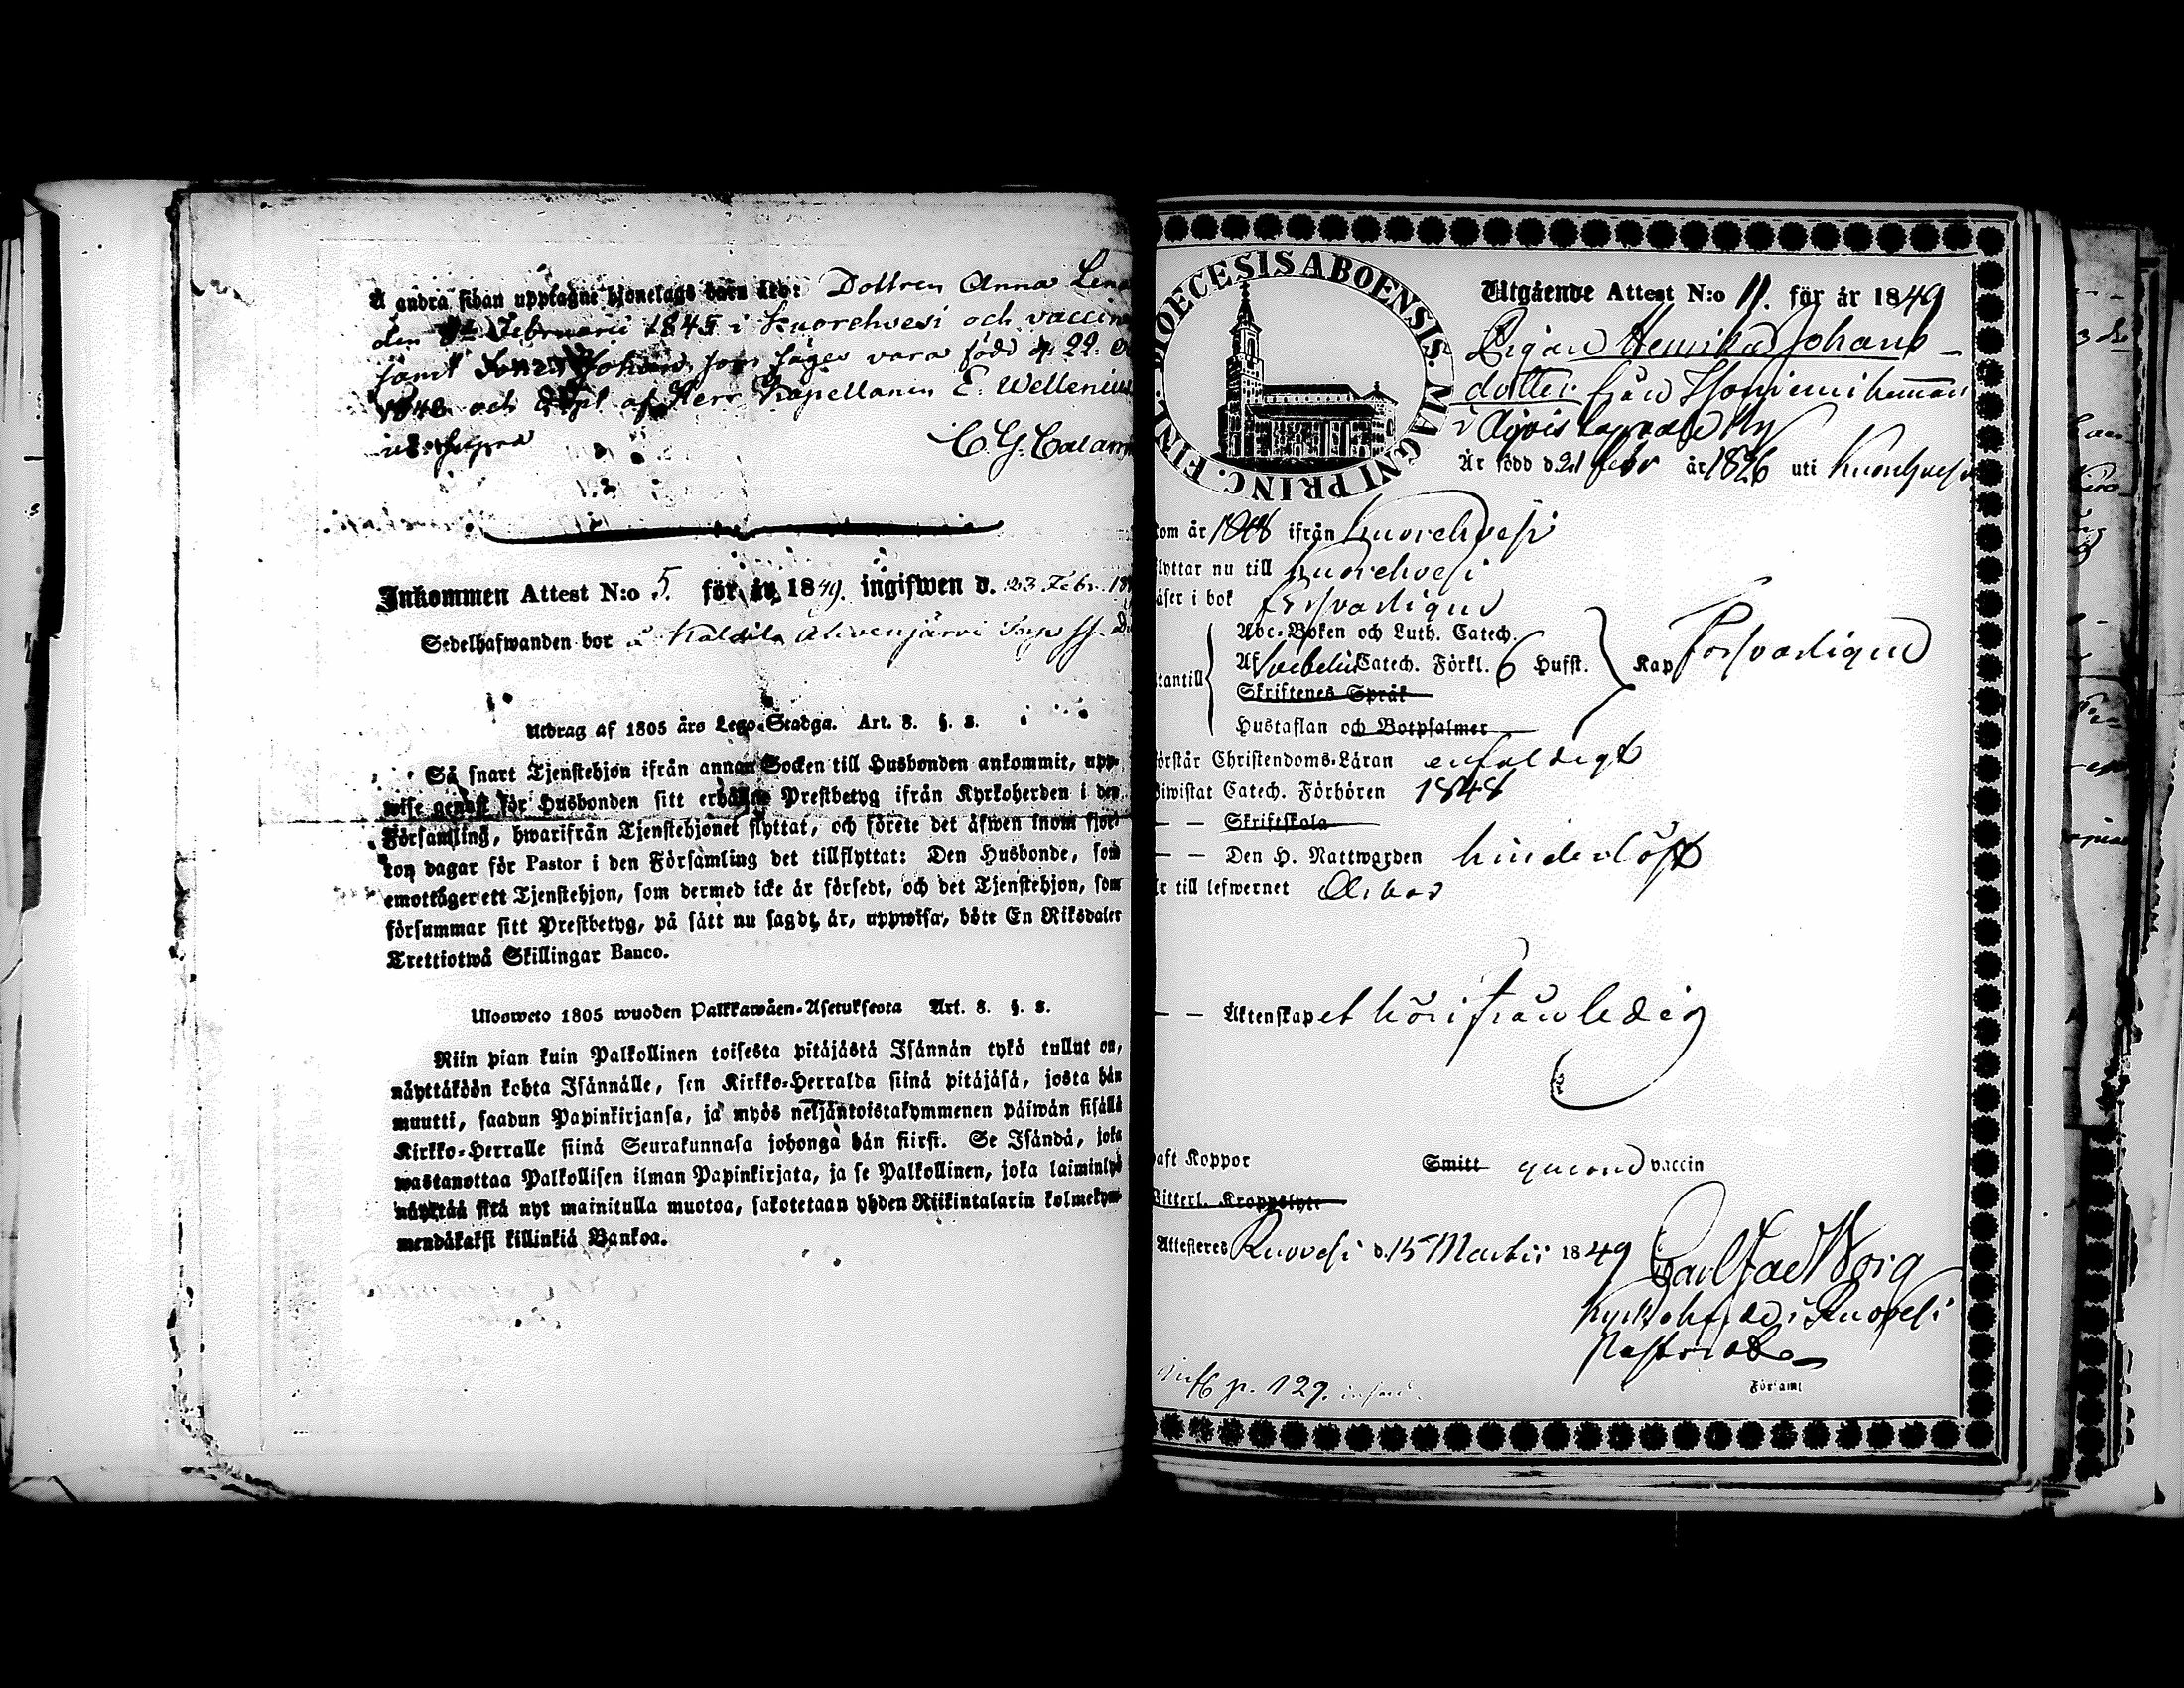 Å andra sidan upptagne hjonelags barn äro: Dottren Anna Lena
den Februarii 1845 i Kuorehvesi och vaccin
samt Sonen Johan som säges vara född d. 22
1848 och döpt af Herr Kapellanen E. Wellenius
C. G. Calam
Inkommen Attest N:o 5. för år 1849. ingifwen d. 23 Febr. 18
Sedelhafwanden bor i
Utdrag af 1805 års Lego-Stadga. Art. 8. §. 8.
Så snart Tjenstehjon ifrån annan Socken till Husbonden ankommit, upp-
wise genast för Husbonden sitt erhållne Prestbetyg ifrån Kyrkoherden i den
Församling, hwarifrån Tjenstehjonet flyttat, och förete det äfwen inom fjor-
ton dagar för Pastor i den Församling det tillflyttat: Den Husbonde, som
emottager ett Tjenstehjon, som dermed icke är försedt, och det Tjenstehjon, som
försummar sitt Prestbetyg, på sätt nu sagdt är, uppwisa, böte En Riksdaler
Trettiotwå Skillingar Banco.
Ulosweto 1805 wuoden Palkkawäen-Asetuksesta Art. 8. §. 8.
Niin pian kuin Palkollinen toisesta pitäjästä Isännän tykö tullut on,
näyttäköön kohta Isännälle, sen Kirkko-Herralda siinä pitäjäsä, josta hän
muutti, saadun Papinkirjansa, ja myös neljäntoistakymmenen päiwän sisällä
Kirkko-Herralle siinä Seurakunnasa johonga hän siirsi. Se Isändä, joka
wastanottaa Palkollisen ilman Papinkirjata, ja se Palkollinen, joka laiminlyö
näyttää sitä nyt mainitulla muotoa, sakotetaan yhden Riikintalarin kolmekym-
mendäkaksi killinkiä Bankoa.
FINL. DIOECESIS ABOENSIS. MAGNI PRINC.
Utgående Attest N:o 11. för år 1849
Pigan Henrika Johans-
dotter från
i
Är född d. 21 febr år 1826 uti Kuorehvesi
kom år 1848 ifrån Kuorehvesi
flyttar nu till Kuorehvesi
läser i bok försvarligen
Abc-Boken och Luth. Catech.
Af Svebelii Catech. Förkl. 6 Hufst. Kap försvarligen
utantill
Skriftenes Språk
Hustaflan och Botpsalmer
förstår Christendoms-Läran enfaldigt
Biwistat Catech. Förhören 1848
— — Skriftskola
— — Den H. Nattwarden hinderlöst
Är till lefwernet ärbar
— — Äktenskapet hörifrån ledig
haft Koppor Smitt genom vaccin
Witterl. Kroppslyte
Attesteres Ruovesi d. 15 Martii 1849
Kyrkoherde i Ruovesi
Pastorat
Församl
p. 129.